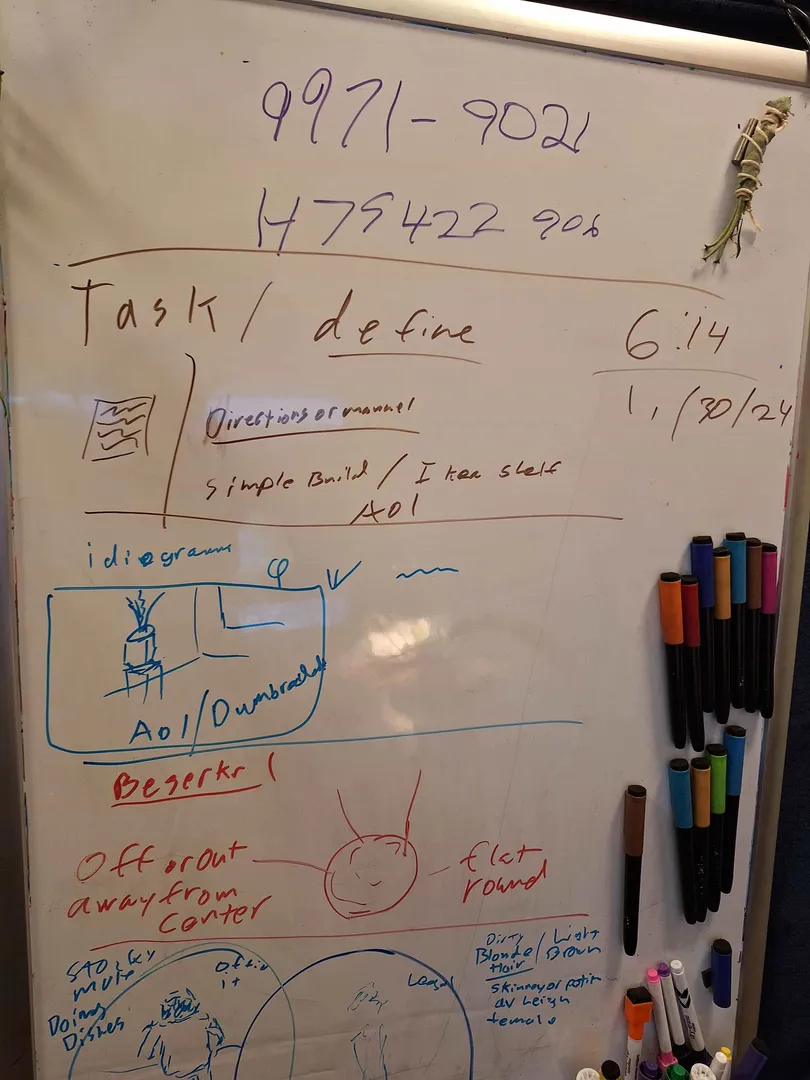 9971-9021
H 79422 906
Task / define
6:14
1, /30/24
Directions or mannel
Simple Build / Ikea shelf
AOl
idiogramm
φ
AOl/Dumbraclet
Beserkr
Off or out
away from
center
flat
round
Stocky
male
Doing
Dishes
Offic
it
Legal
Dirty
Blonde / Light
Hair Brown
skinney or petit
av heigh
female